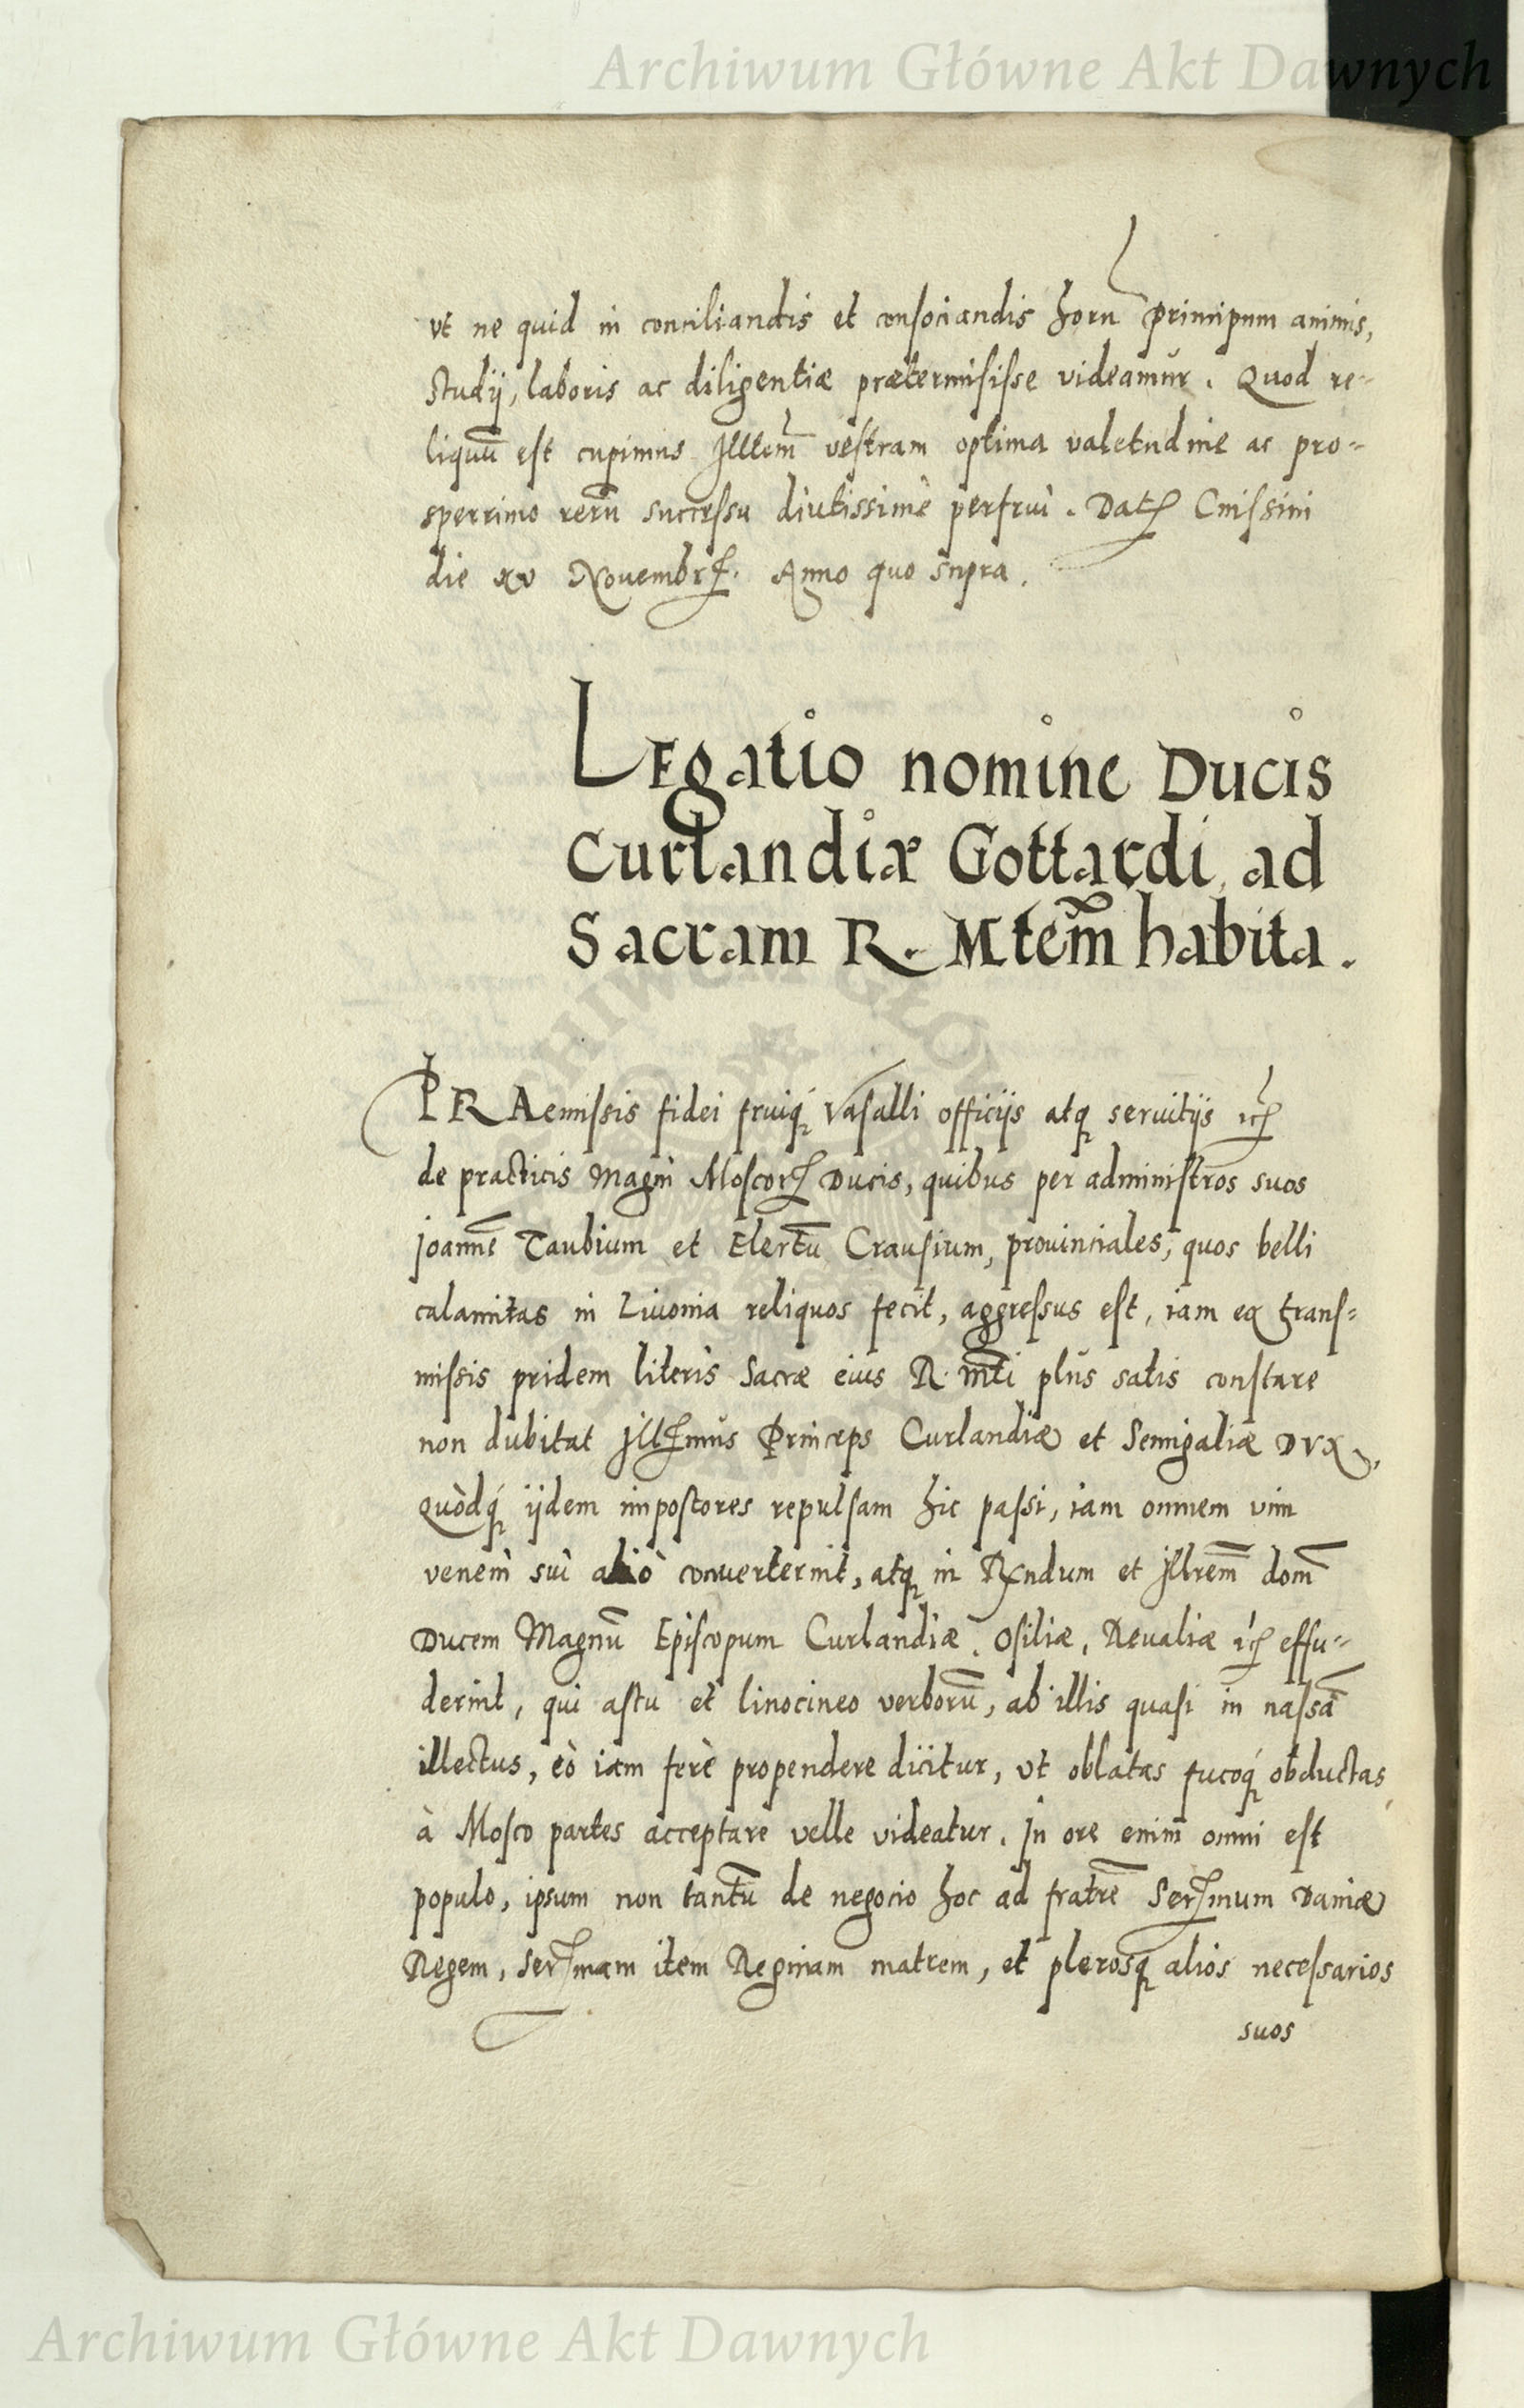 Archiwum Główne Akt Dawnych
vt ne quid in conciliandis et consociandis horũ principum animis,
studij, laboris ac diligentiæ prætermisisse videamur. Quod re-
liquũ est cupimus Illtem̃ vestram optima valetudine ac pro-
sperrimo rerũ successu diutissimè perfrui. Datꝭ Cnissini
die xv Novembrꝭ. Anno quo supra.
Legatio nomine Ducis
Curlandiæ Gottardi, ad
Sacram R. Mtem̃ habita.
PRAemissis fidei fruiq́ꝫ Vasalli officijs atqꝫ servitijs ꝛcꝭ
de practicis magni Moscorꝭ Ducis, quibus per administros suos
Joannẽ Taubium et Elertũ Crausium, provinciales, quos belli
calamitas in Livonia reliquos fecit, aggressus est, iam ex trans-
missis pridem literis Sacræ eius R. Mt̃i plus satis constare
non dubitat Illꝭmus Princeps Curlandiæ et Semigaliæ DVX,
quòdq́ꝫ ijdem impostores repulsam hic passi, iam omnem vim
veneni sui aliò converterint, atqꝫ in Rꝭndum et Illrem̃ dom̃
Ducem Magnũ Episcopum Curlandiæ, Osiliæ, Revaliæ ꝛcꝭ effu-
derint, qui astu et linocineo verborũ, ab illis quasi in nassã
illectus, eò iam ferè propendere dicitur, vt oblatas fucoq́ꝫ obductas
à Mosco partes acceptare velle videatur. In ore enim omni est
populo, ipsum non tantũ de negocio hoc ad fratrẽ Serꝭmum Daniæ
Regem, Serꝭmam item Reginam matrem, et plerosqꝫ alios necessarios
suos
Archiwum Główne Akt Dawnych